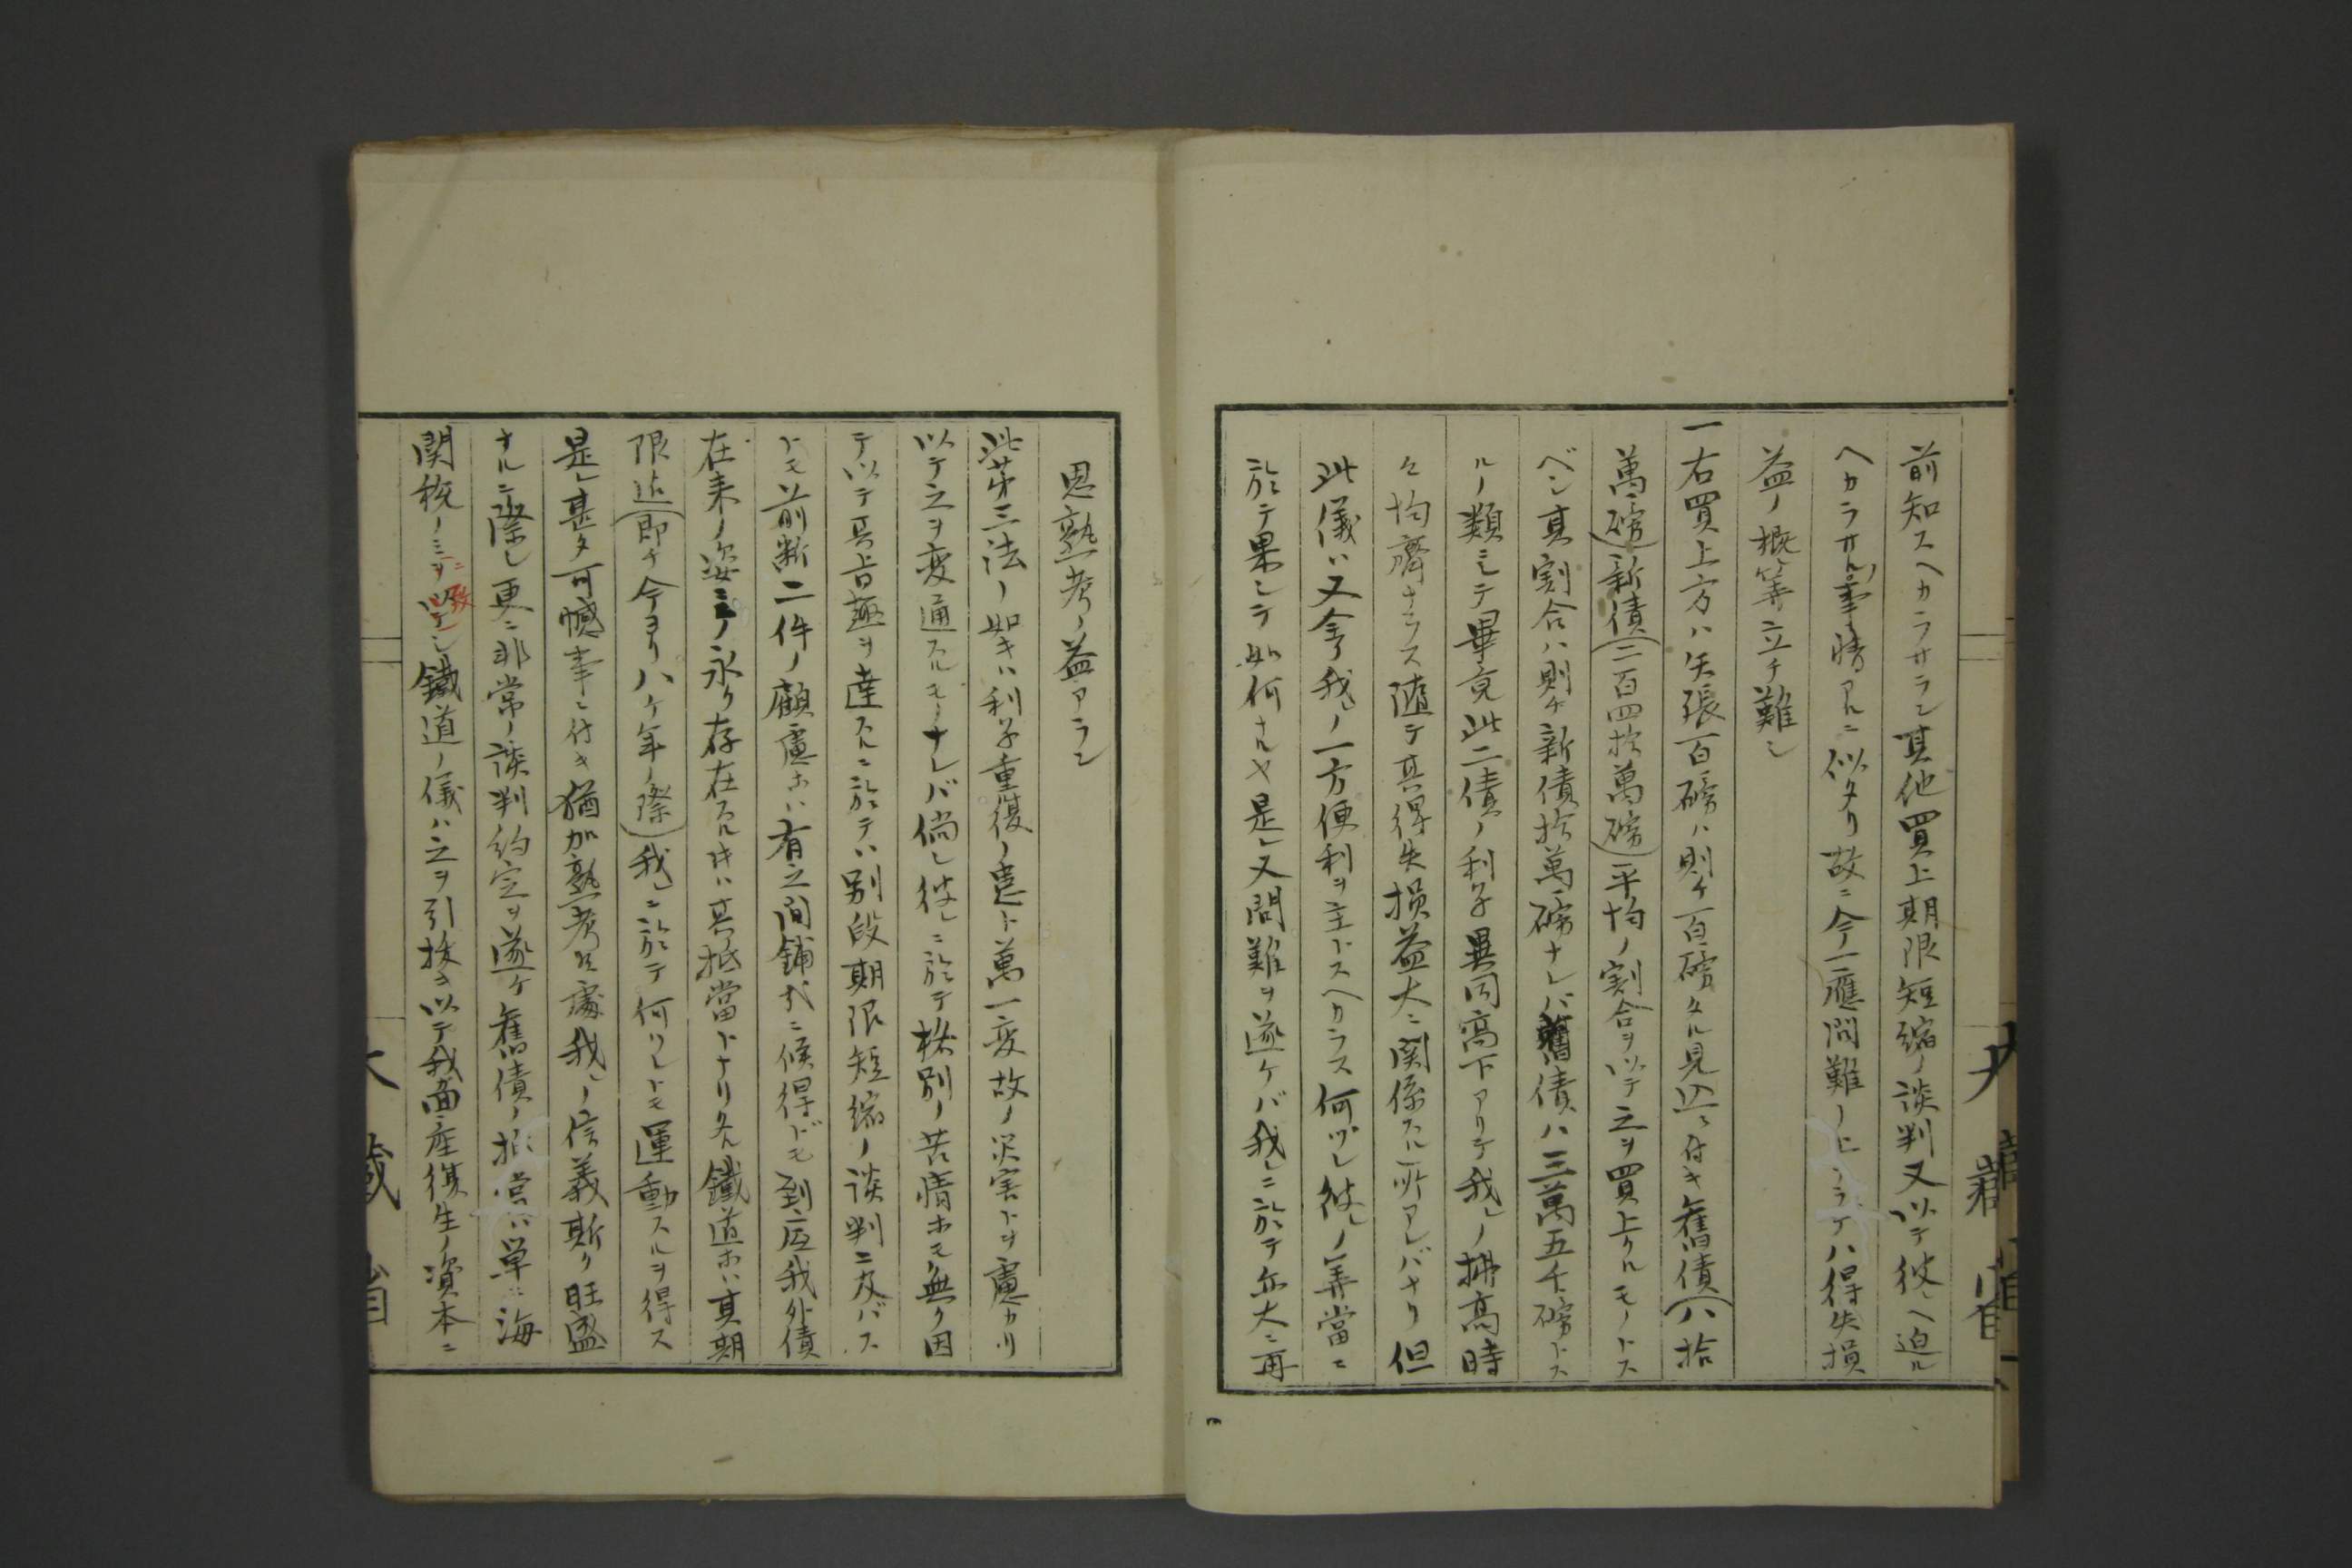 前知スヘカラサラン其他買上期限短縮ノ談判又以テ彼レヘ迫ル
ヘカラサル事情アルニ似タリ故ニ今一應問難ノ上ナラデハ得失損
益ノ概筭立チ難シ
一右買上方ハ矢張百磅ハ則チ百磅タル見込ニ付キ舊債(八拾
萬磅)新債(二百四拾萬磅)平均ノ割合ヲ以テ之ヲ買上クルモノトス
ベシ其割合ハ則チ新債拾萬磅ナレバ舊債ハ三萬五千磅トス
ルノ類ニシテ畢竟此二債ノ利子異同高下アリテ我レノ拂高時
々均齊ナラス随テ其得失損益大ニ関係スル所アレバナリ但
此儀ハ又全ク我レノ一方便利ヲ主トスヘカラス何ツレ彼レノ筭當ニ
於テ果シテ如何ナルヤ是レ又問難ヲ遂ケバ我レニ於テ亦大ニ再
思熟考ノ益アラン
此第三法ノ如キハ利子重復ノ患ト萬一変故ノ災害トヲ慮カリ
以テ之ヲ変通スルモノナレバ倘シ彼レニ於テ格別ノ苦情ホモ無ク因
テ以テ其旨趣ヲ達スルニ於テハ別段期限短縮ノ談判ニ及バス
トモ前断二件ノ顧慮ホハ有之間鋪哉ニ候得ドモ到底我外債
在来ノ姿ニテ永ク存在スルキハ其抵當トナリタル鐵道ホハ其期
限迠(即チ今ヨリ八ケ年ノ際)我レニ於テ何ツレトモ運動スルヲ得ス
是レ甚タ可憾事ニ付キ猶加熟考候處我レノ信義斯ク旺盛
ナルニ際シ更ニ非常ノ談判約定ヲ遂ケ舊債ノ抵當ハ単ニ海
関税ノミニ致シ鐵道ノ儀ハ之ヲ引抜キ以テ我面産復生ノ資本ニ
大藏省